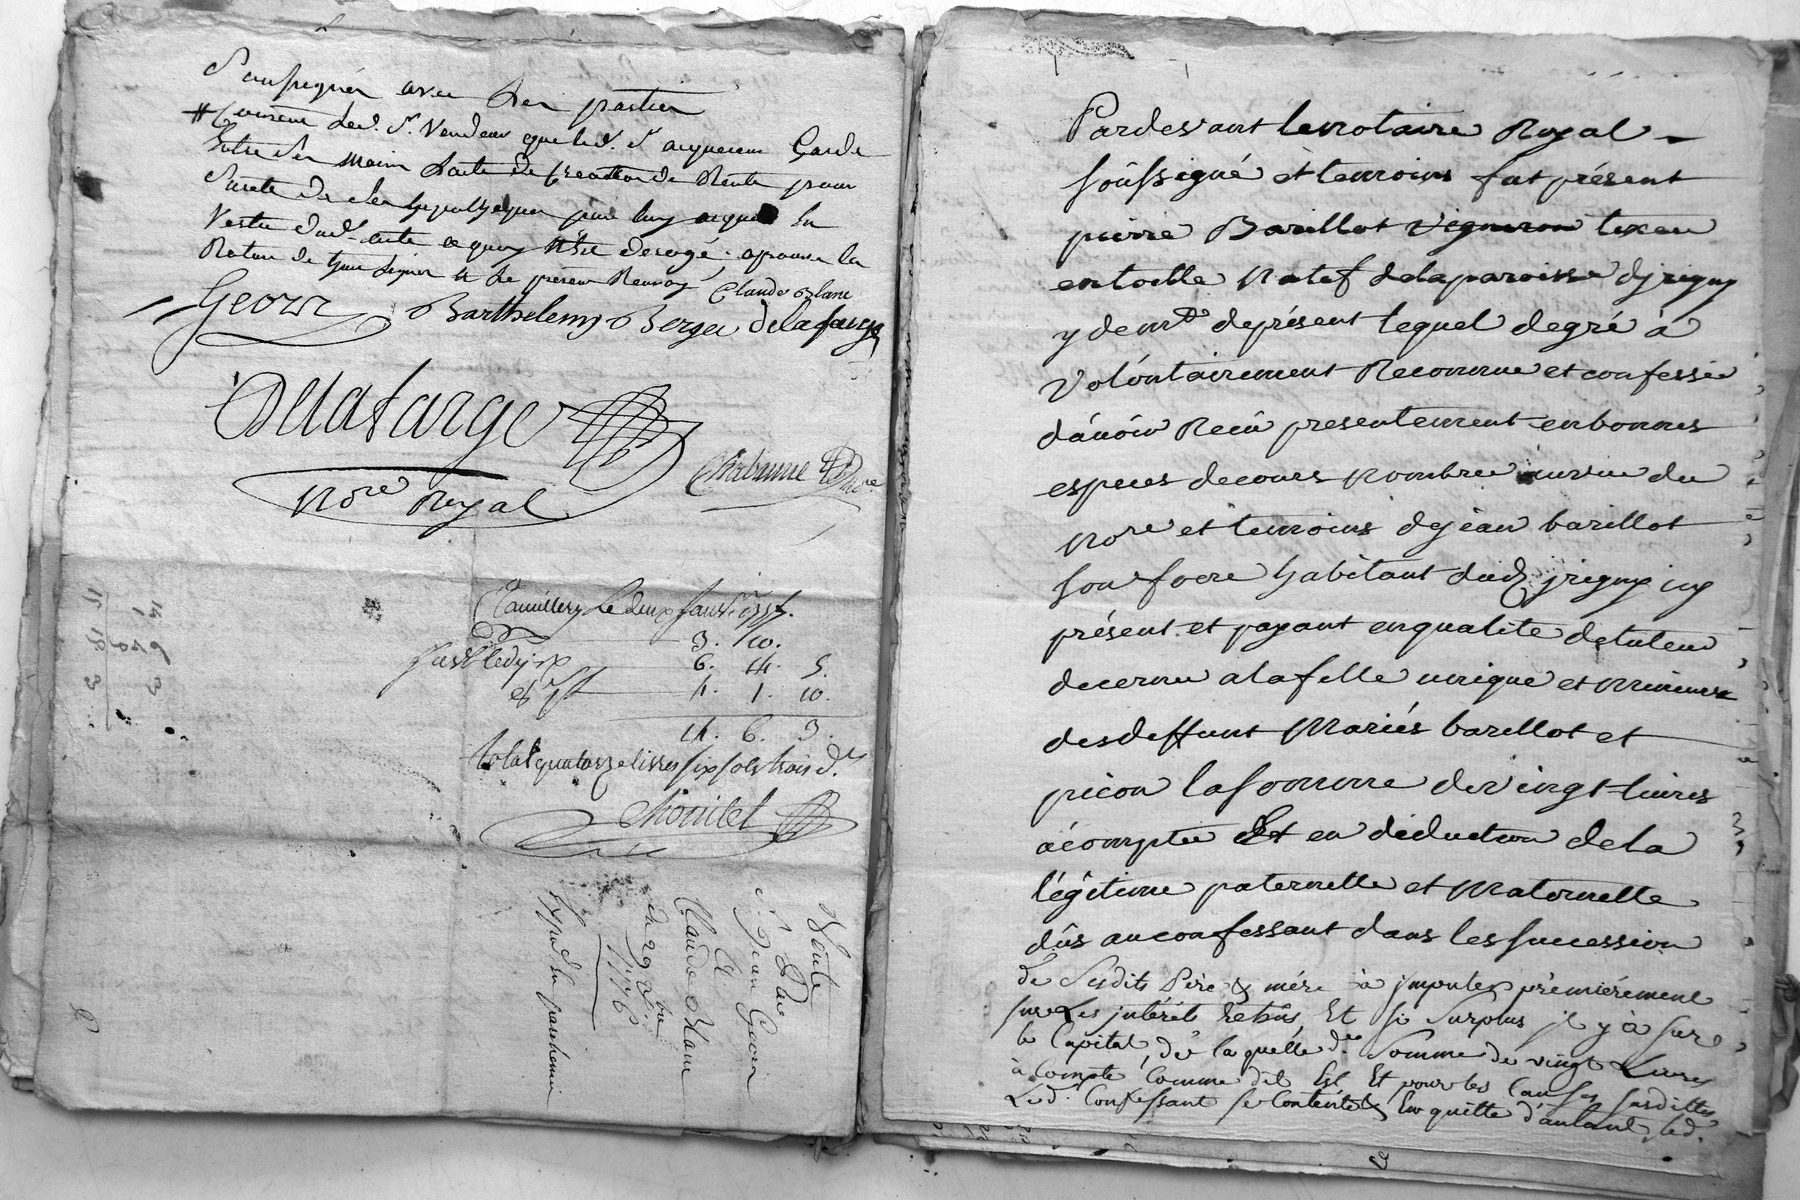 Soussignés avec les parties
# Convenu led. Sr. Vendeur que led. Sr acquereur Garde
Entre Ses mains de Rente pour
Sureté de Ses hypotheques par luy en
Vertu dud. acte a quoy n'Est derogé; aprouve la
Rature de trois Lignes & le présent Renvoy Claude Blanc
Georr Barthelemy Berger delafarge
Delafarge
Chabanne
Nore Royal
le deux
3. 10.
6. 14. 5.
4. 1. 10.
14. 6. 3.
total quatorze livres six sols trois d.rs
Mondet
Vente
Par
Sr. Jean Georr
A
Claude Blanc
du 29 9bre
1776
Expédié en parchemin
Pardevant le notaire Royal
soûssigné et temoins fut présent
pierre Barillot vigneron tixeur
en toille natif de la paroisse d'jrigny
y demt. de présent lequel de gré à
volóntairement Reconnu et confessé
d'auoir Reçû presentement en bonnes
especes de cours nombrée au vû du
nore et temoins de jean barillot
son frere habitant dud. jrigny icy
présent et payant en qualité de tuteur
decerné a la fille unique et mineure
des deffunt mariés barillot et
picon la somme de vingt livres
à compte Et en déduction de la
légitime paternelle et maternelle
dûs au confessant dans les succession
de Sesdits Père & mère à jmputer prémiérement
sur Les jntérêts échus Et si Surplus jl y à sur
le Capital, dé laquélle de. Somme de vingt Livres
à Compte Comme dit Est Et pour les Causes susdittes
Led. Confessant se Contente & En quitte d'autant led.